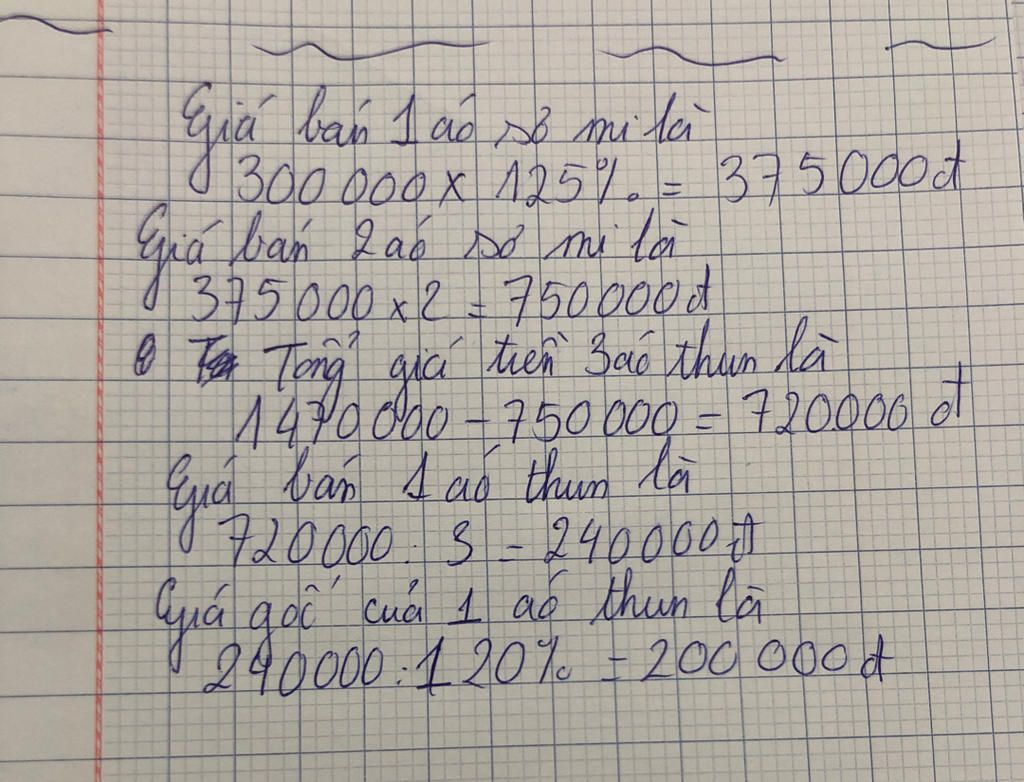 Giá bán 1 áo sơ mi là
300 000 x 125% = 375 000đ
Giá bán 2 áo sơ mi là
375 000 x 2 = 750 000đ
Tổng giá tiền 3 áo thun là
1470 000 - 750 000 = 720000 đ
Giá bán 1 áo thun là
720000 : 3 = 240000đ
Giá gốc của 1 áo thun là
240000 : 120% = 200 000đ